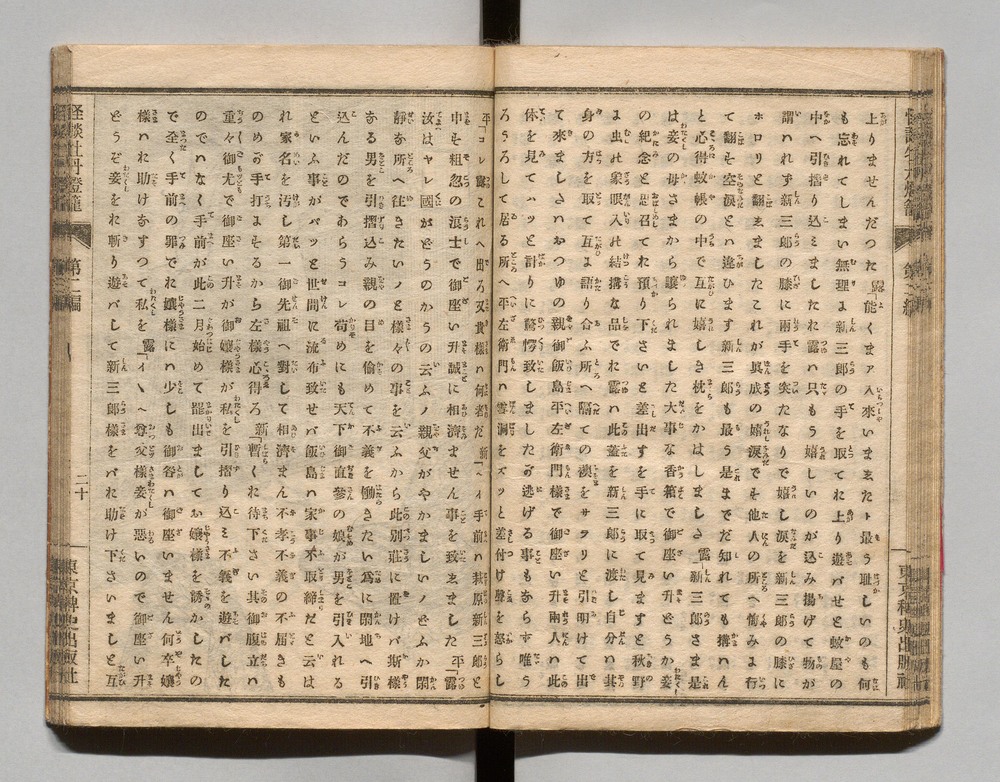 上りませんだつた露「能くまァ入來いましたト最う耻しいのも何
も忘れてしまい無理に新三郎の手を取てお上り遊バせと蚊屋の
中へ引摺り込ミましたお露ハ只もう嬉しいのが込み揚げて物が
謂ハれず新三郎の膝に兩手を突たなりで嬉し涙を新三郎の膝に
ホロリと翻しましたこれが眞成の嬉し涙でそ他人の所へ悔みに行
て翻そ空涙とハ違ひます新三郎も最う是までだ知れても搆ハん
と心得蚊帳の中で互に嬉しき枕をかはしました露「新三郎さま是
は妾の母さまから讓られました大事な香箱で御座い升どうか妾
の紀念と思召てお預り下さいと差出すを手に取て見ますと秋野
ま虫の象眼入の結搆な品でお露ハ此蓋を新三郎に渡し自分ハ其
身の方を取て互に語り合ふ所へ隔ての襖をサラリと引明けて出
て來ましたハおつゆの親御飯島平左衛門様で御座い升兩人ハ此
体を見てハッと計りに驚愕致しましたが逃げる事もならず唯う
ろうろして居る所へ平左衛門ハ雪洞をズッと差付け聲を怒らし
平「コレ露これへ出ろ又貴様ハ何者だ新「ヘイ手前ハ萩原新三郎と
申そ粗忽の浪士で御座い升誠に相濟ません事を致しました平「露
汝はヤレ國がどうのかうのと云ふノ親父がやかましいノどふか閑
靜な所へ徃きたいノと様々の事を云ふから此別莊に置けバ斯様
なる男を引摺込み親の目を偸めて不義を働きたい爲に閑地へ引
込んだのであらうコレ苟めにも天下御直參の娘が男を引入れる
といふ事がパッと世間に流布致せバ飯島ハ家事不取締だと云は
れ家名を汚し第一御先祖へ對して相濟まん不孝不義の不届きも
のめが手打にそるから左様心得ろ新「暫くお待下さい其御腹立ハ
重々御尤で御座い升が御嬢様が私を引摺り込ミ不義を遊バした
のでハなく手前が此二月始めて罷出ましてお嬢様を誘かしたの
で全く手前の罪でお孃様にハ少しも御咎ハ御座いません何卒孃
様ハお助けなすつて私を露「イヽ〜尊父様妾が悪いので御座い升
どうぞ妾をお斬り遊バして新三郎様をバお助け下さいましと互
怪談牡丹燈籠 第二編 八 二十 東京稗史出版社